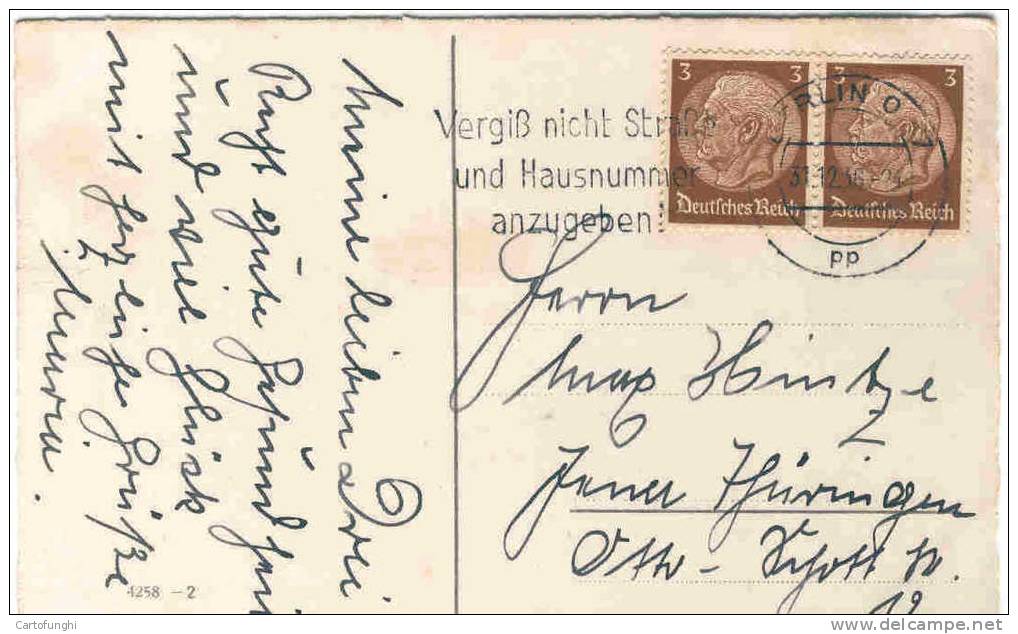 Meine lieben Drei
Recht gute Gesundheit
und viel Glück
mit herzliche Grüße
4258 – 2
Vergiß nicht Straße
und Hausnummer
anzugeben!
3 3 3
Deutsches Reich Deutsches Reich
RLIN O
31.12.36 -24
pp
Herrn
Max Hintze
Jena Thüringen
Otto-Schott
12
Cartofunghi
www.delcampe.net